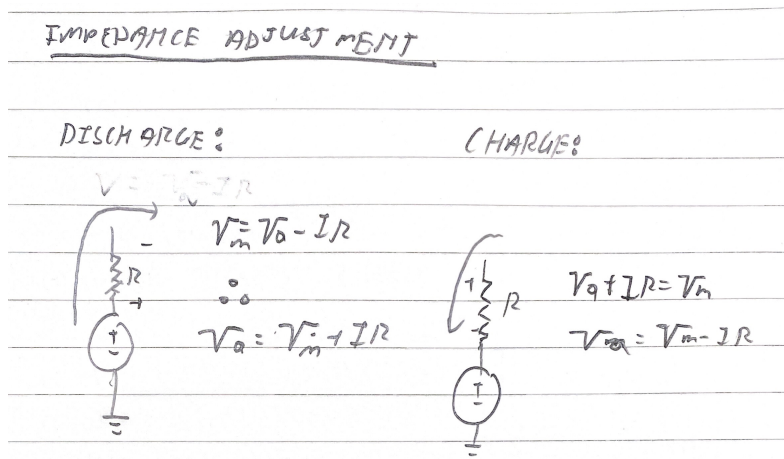 IMPEDANCE ADJUSTMENT
DISCHARGE:
CHARGE:
Vm = Va - IR
-
R
+
∴
Va = Vm + IR
+
-
+
R
-
Va + IR = Vm
Va = Vm - IR
+
-